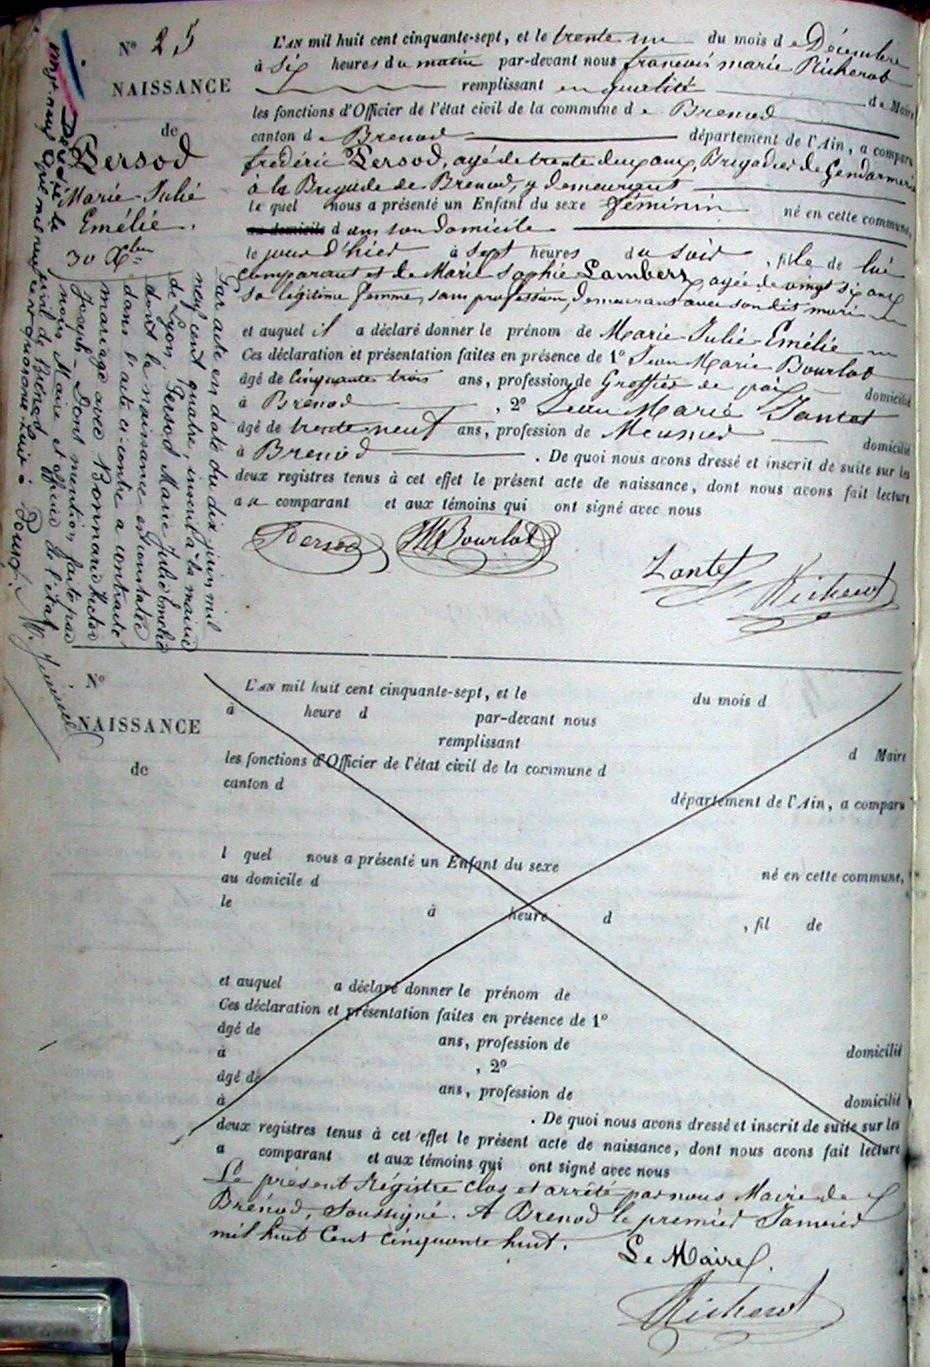 N° 25
NAISSANCE
de
Persod
Marie Julie
Emélie.
30 Xbre
L'AN mil huit cent cinquante-sept, et le trente un du mois de Décembre
à six heures du matin par-devant nous françois marie Richerot
remplissant en qualité de Maire
les fonctions d'Officier de l'état civil de la commune de Brenod
canton de Brenod département de l'Ain, a comparu
frédéric Persod, agé de trente deux ans, Brigadier de Gendarmerie
à la Brigade de Brenod, y demeurant
lequel nous a présenté un Enfant du sexe féminin né en cette commune,
au domicile dans son domicile
le jour d'hier à sept heures du soir, fille de lui
comparant et de Marie Sophie Lambert, agée de vingt six ans
sa légitime femme, sans profession, demeurant avec son dit mari
et auquel il a déclaré donner le prénom de Marie Julie Emélie
Ces déclaration et présentation faites en présence de 1° Jean Marie Bourlot
âgé de Cinquante trois ans, profession de Greffier de paix domicilié
à Brenod, 2° Jean Marie Zantet
âgé de trente neuf ans, profession de Meunier domicilié
à Brenod. De quoi nous avons dressé et inscrit de suite sur les
deux registres tenus à cet effet le présent acte de naissance, dont nous avons fait lecture
au comparant et aux témoins qui ont signé avec nous
Persod JM Bourlot
Zantet Richerot
Par acte en date du dix juin mil
neuf cent quatre, inscrit à la mairie
de Lyon, Persod Marie Julie Emélie
dont la naissance est constatée
dans l'acte ci-contre a contracté
mariage avec Bonnard Victor
Joseph. Dont mention faite par
nous Maire et officier de l'état
civil de Brénod
Décédée le
N°
NAISSANCE
de
L'AN mil huit cent cinquante-sept, et le du mois d
à heure d par-devant nous
remplissant
d Maire
les fonctions d'Officier de l'état civil de la commune d
canton d
département de l'Ain, a comparu
l quel nous a présenté un Enfant du sexe né en cette commune,
au domicile d
le à heure d , fil de
et auquel a déclaré donner le prénom de
Ces déclaration et présentation faites en présence de 1°
âgé de ans, profession de domicilié
à , 2°
âgé de ans, profession de domicilié
à . De quoi nous avons dressé et inscrit de suite sur les
deux registres tenus à cet effet le présent acte de naissance, dont nous avons fait lecture
a comparant et aux témoins qui ont signé avec nous
Le présent Régistre clos et arrêté par nous Maire de
Brénod, soussigné. A Brenod le premier Janvier
mil huit Cent cinquante huit.
Le Maire.
Richerot